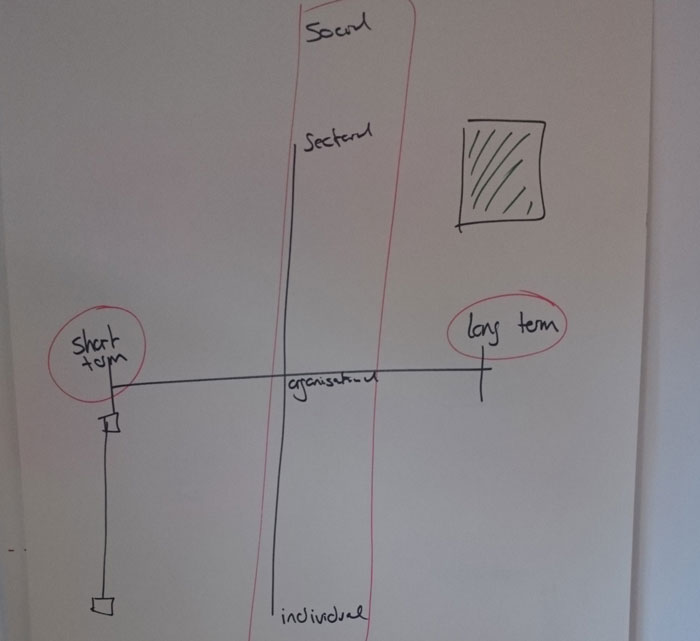 Social
Sectoral
Short
term
long term
organisational
individual